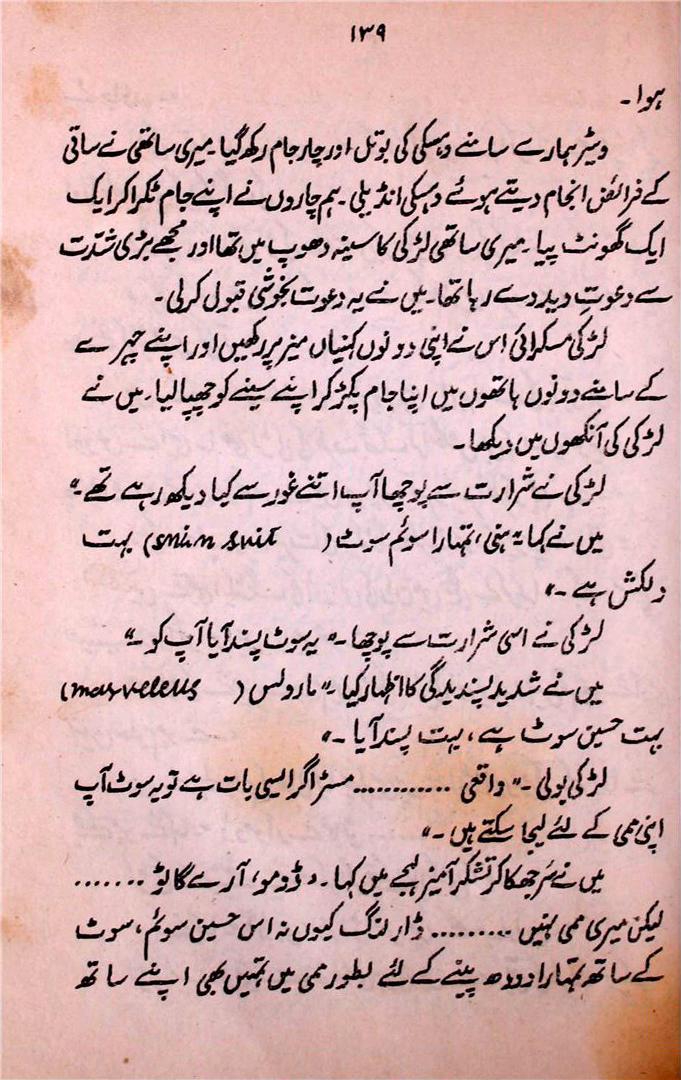 ۱۳۹
ہوا۔
ویٹر ہمارے سامنے وہسکی کی بوتل اور چار جام رکھ گیا۔ میری ساتھی نے ساقی
کے فرائض انجام دیتے ہوئے وہسکی انڈیلی۔ ہم چاروں نے اپنے جام ٹکرا کر ایک
ایک گھونٹ پیا۔ میری ساتھی لڑکی کا سینہ دھوپ میں تھا اور مجھے بڑی شدّت
سے دعوتِ دید دے رہا تھا۔ میں نے یہ دعوت بخوشی قبول کرلی۔
لڑکی مسکرائی اس نے اپنی دونوں کہنیاں میز پر رکھیں اور اپنے چہرے
کے سامنے دونوں ہاتھوں میں اپنا جام پکڑ کر اپنے سینے کو چھپا لیا۔ میں نے
لڑکی کی آنکھوں میں دیکھا۔
لڑکی نے شرارت سے پوچھا آپ اتنے غور سے کیا دیکھ رہے تھے۔"
میں نے کہا "ہنی، تمہارا سوئم سوٹ (swim suit) بہت
دلکش ہے۔"
لڑکی نے اسی شرارت سے پوچھا۔ "یہ سوٹ پسند آیا آپ کو۔"
میں نے شدید پسندیدگی کا اظہار کیا۔ "مارولس (marveleus)
بہت حسین سوٹ ہے، بہت پسند آیا۔"
لڑکی بولی۔ "واقعی ............ مسٹر اگر ایسی بات ہے تو یہ سوٹ آپ
اپنی ممی کے لئے لیجا سکتے ہیں۔"
میں نے سَر جھکا کر تشکر آمیز لہجے میں کہا۔ "ڈومو، آرے گاٹو .......
لیکن میری ممی نہیں ......... ڈارلنگ کیوں نہ اس حسین سوئم، سوٹ
کے ساتھ تمہارا دودھ پینے کے لئے بطور ممی میں تمہیں بھی اپنے ساتھ